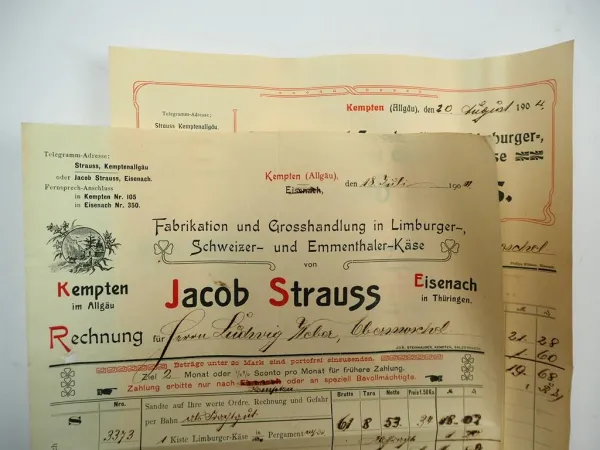 Telegramm-Adresse:
Strauss Kemptenallgäu
Kempten (Allgäu), den 20 August 1904.
Limburger-,
Telegramm-Adresse:
Strauss, Kemptenallgäu
oder Jacob Strauss, Eisenach.
Fernsprech-Anschluss
in Kempten Nr. 105
in Eisenach Nr. 350.
Kempten (Allgäu),
Eisenach, den 18 Juli 190
Fabrikation und Grosshandlung in Limburger-,
Schweizer- und Emmenthaler-Käse
von
Kempten
im Allgäu
Jacob Strauss
Eisenach
in Thüringen.
Rechnung für Herrn Ludwig Weber, Obermoschel
Beträge unter 20 Mark sind portofrei einzusenden.
Ziel 2 Monat oder % Sconto pro Monat für frühere Zahlung.
Zahlung erbitte nur nach Eisenach oder an speziel Bevollmächtigte.
Kempten
Nro.
Sandte auf Ihre werte Ordre, Rechnung und Gefahr
Brutto Tara Netto Preis 1/2 Ko.
3373
per Bahn als Eilgut
61 8 53 34 18 02
1 Kiste Limburger-Käse in Pergament
21 28
1 60
19 68